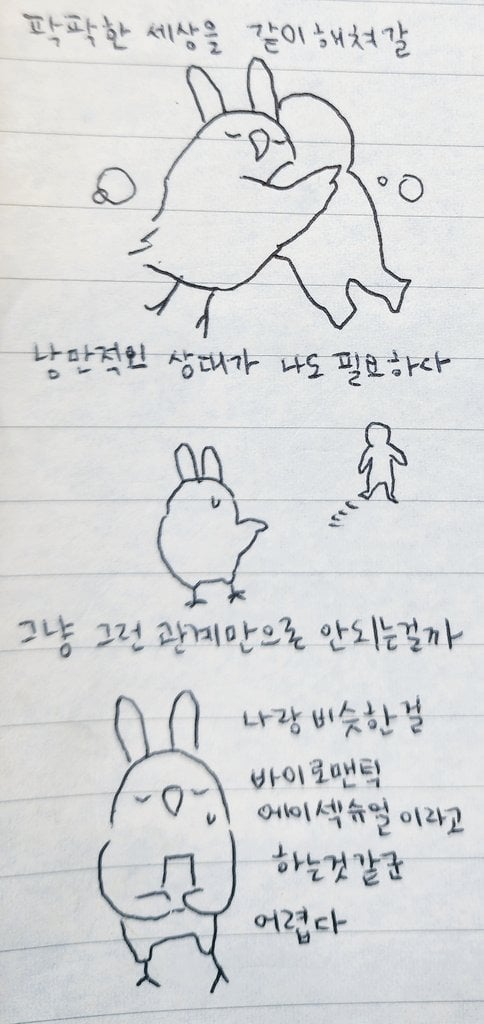 팍팍한 세상을 같이 해쳐갈
낭만적인 상대가 나도 필요하다
그냥 그런 관계만으론 안되는걸까
나랑 비슷한 걸
바이로맨틱
에이섹슈얼 이라고
하는것 같군
어렵다